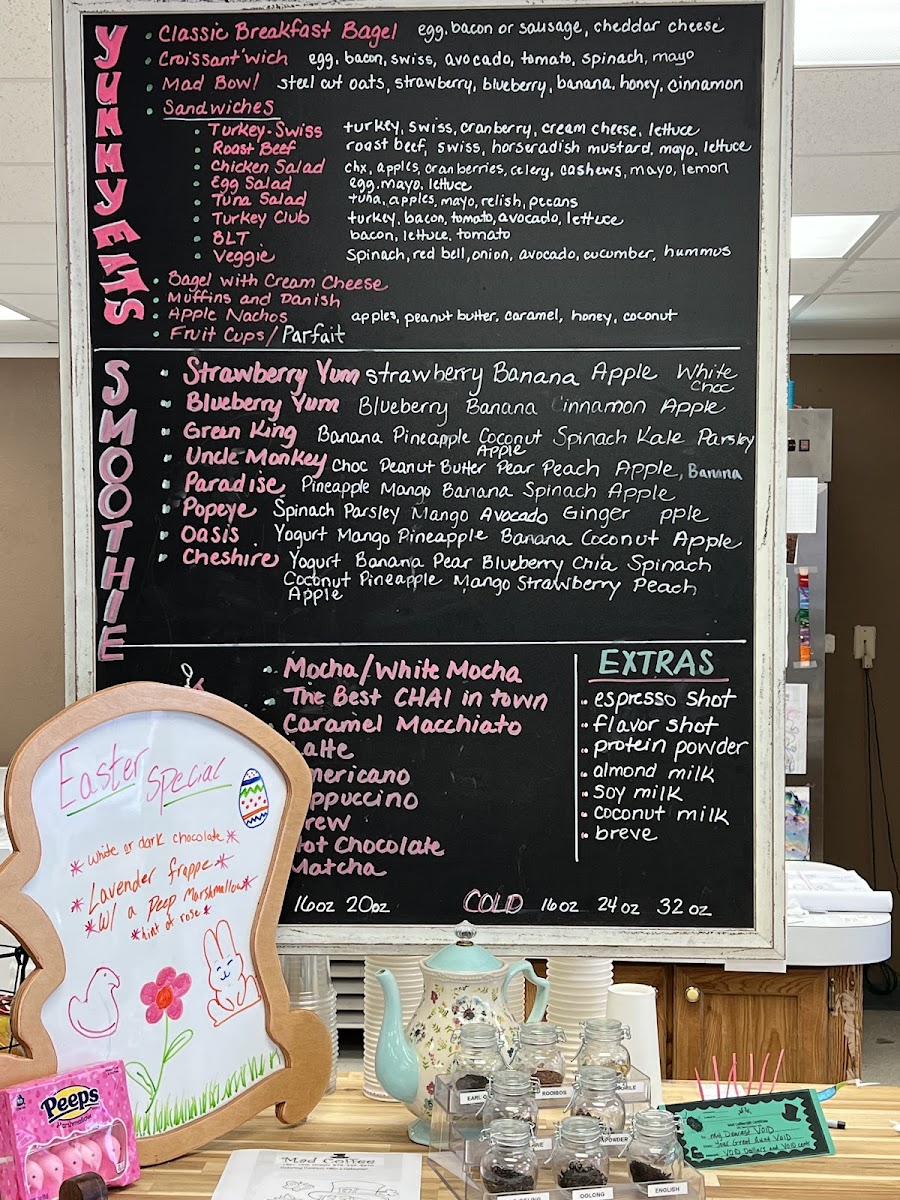 YUMMY EATS
Classic Breakfast Bagel egg, bacon or sausage, cheddar cheese
Croissant'wich egg, bacon, swiss, avocado, tomato, spinach, mayo
Mad Bowl steel cut oats, strawberry, blueberry, banana, honey, cinnamon
Sandwiches
Turkey-Swiss turkey, swiss, cranberry, cream cheese, lettuce
Roast Beef roast beef, swiss, horseradish mustard, mayo, lettuce
Chicken Salad chx, apples, cranberries, celery, cashews, mayo, lemon
Egg Salad egg, mayo, lettuce
Tuna Salad tuna, apples, mayo, relish, pecans
Turkey Club turkey, bacon, tomato, avocado, lettuce
BLT bacon, lettuce, tomato
Veggie Spinach, red bell, onion, avocado, cucumber, hummus
Bagel with Cream Cheese
Muffins and Danish
Apple Nachos apples, peanut butter, caramel, honey, coconut
Fruit Cups/Parfait
SMOOTHIE
Strawberry Yum strawberry Banana Apple White
Choc
Blueberry Yum Blueberry Banana innamon Apple
Green King Banana Pineapple Coconut Spinach Kale Parsley
Apple
Uncle Monkey Choc Peanut Butter Pear Peach Apple, Banana
Paradise Pineapple Mango Banana Spinach Apple
Popeye Spinach Parsley Mango Avocado Ginger pple
Oasis Yogurt Mango Pineapple Banana Coconut Apple
Cheshire Yogurt Banana Pear Blueberry Chia Spinach
Coconut Pineapple Mango Strawberry Peach
Apple
Mocha/White Mocha
The Best CHAI in town
Caramel Macchiato
atte
mericano
ppuccino
rew
ot Chocolate
Matcha
16oz 20oz COLD 16oz 24oz 32oz
EXTRAS
espresso shot
flavor shot
protein powder
almond milk
soy milk
coconut milk
breve
Easter Special
*white or dark chocolate*
*Lavender frappe*
*W/ a Peep Marshmallow*
*hint of rose*
Peeps
Marshmallow
Mad Coffee
EARL
ROOIBOS
POWDER
OOLONG
ENGLISH
My Dearest VOID
Your Great Aunt VOID
VOID Dollars and VOID cents